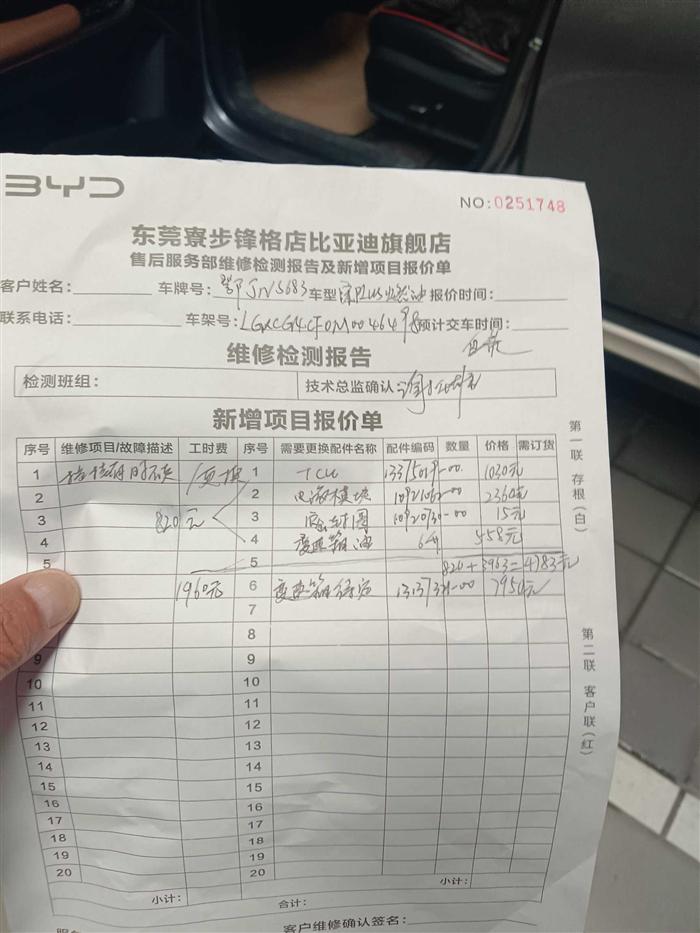 BYD
NO:0251748
东莞寮步锋格店比亚迪旗舰店
售后服务部维修检测报告及新增项目报价单
客户姓名: 车牌号: 鄂JN5683 车型 宋PLUS燃油 报价时间:
联系电话: 车架号: LGXCG4CF0M0046498 预计交车时间:
维修检测报告
检测班组: 技术总监确认:
新增项目报价单
序号 维修项目/故障描述 工时费 序号 需要更换配件名称 配件编码 数量 价格 需订货
1 更换 1 TCU 1030元
2 2 电液模块 2360元
3 820元 3 密封圈 15元
4 4 变速箱油 6升 558元
5 5 820+3963=4783元
1960元 6 变速箱 7950元
7
8 8
9 9
10 10
11 11
12 12
13 13
14 14
15 15
16 16
17 17
18 18
19 19
20 20
小计: 小计:
合计:
客户维修确认签名:
第一联 存根(白)
第二联 客户联(红)